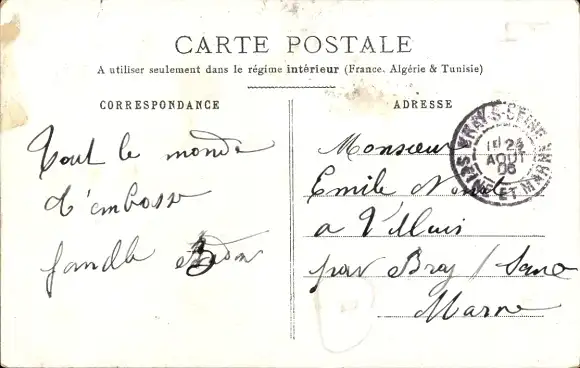 CARTE POSTALE
A utiliser seulement dans le régime intérieur (France, Algérie & Tunisie)
CORRESPONDANCE
Tout le monde
t'embrasse
famille
ADRESSE
Monsieur
Emile
a Villuis
par Bray / Seine
Marne
BRAY-S-SEINE
24
AOUT
06
SEINE ET MARNE